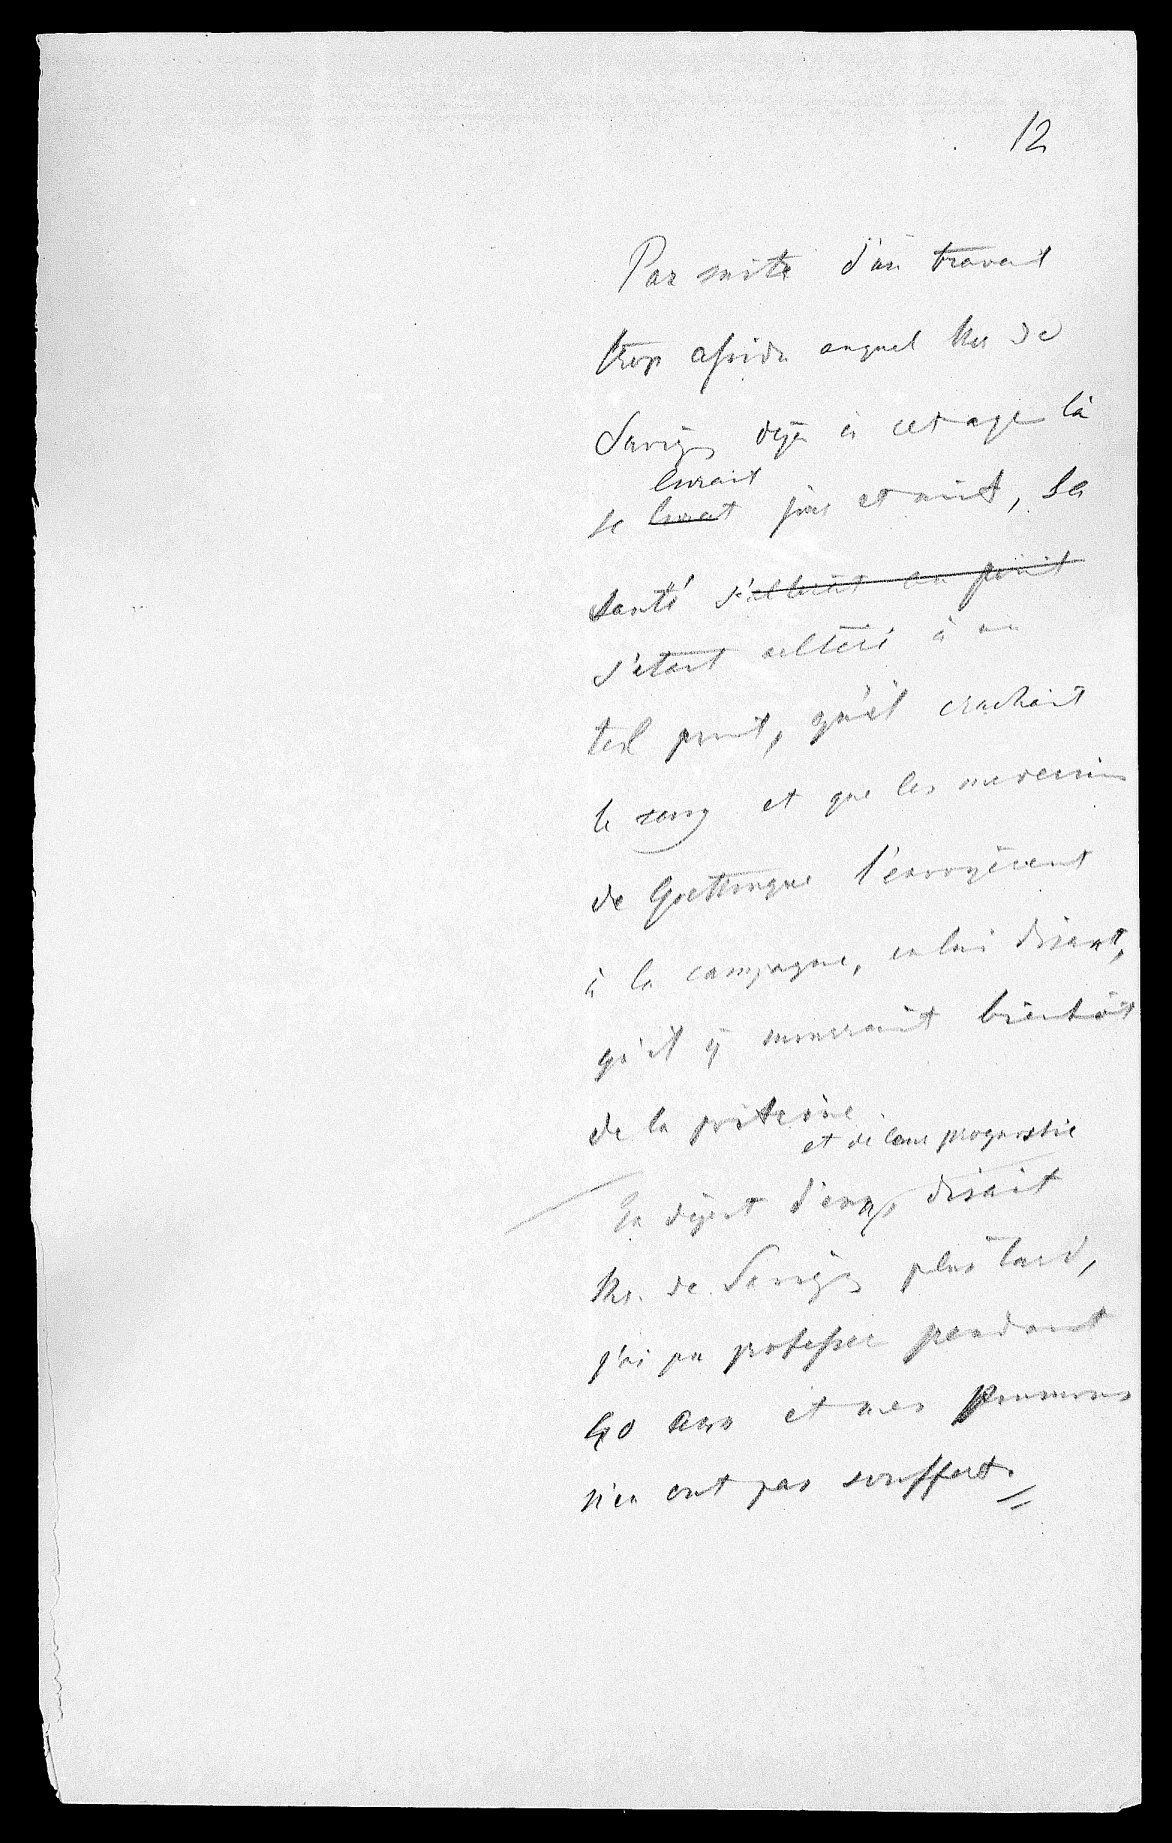 12
Par suite d'un travail
trop assidu auquel Mr de
Savigny déjà à cet age là
livrait
se livrait jour et nuit, sa
santé s'altérait au point
s'etait altéré à un
tel point, qu'il crachait
le sang et que les medecins
de Goettingue l'envoyèrent
à la campagne, en lui disant,
qu'il y mourrait bientôt
de la poitrine
et de leur prognostic
En dépit d'eux, disait
Mr. de Savigny plus tard,
j'ai pu professer pendant
40 ans et mes poumons
n'en ont pas souffert.